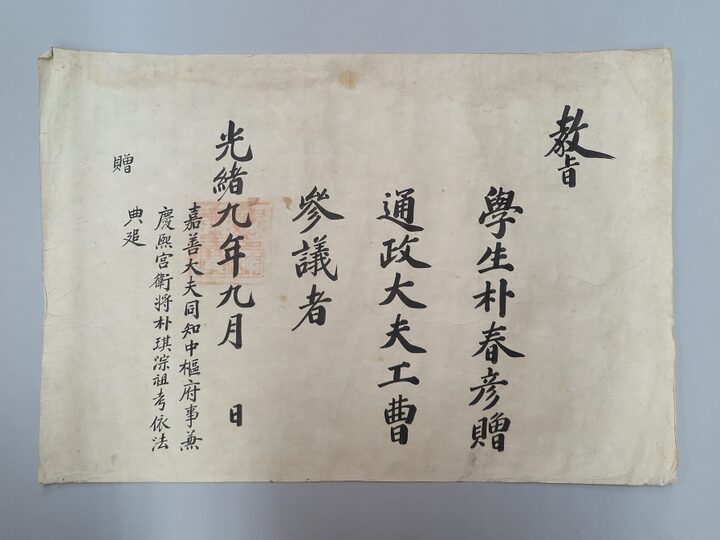 教旨
學生朴春彦贈
通政大夫工曹
參議者
光緒九年九月 日
嘉善大夫同知中樞府事兼
慶熙宮衛將朴琪淙祖考依法
典追
贈